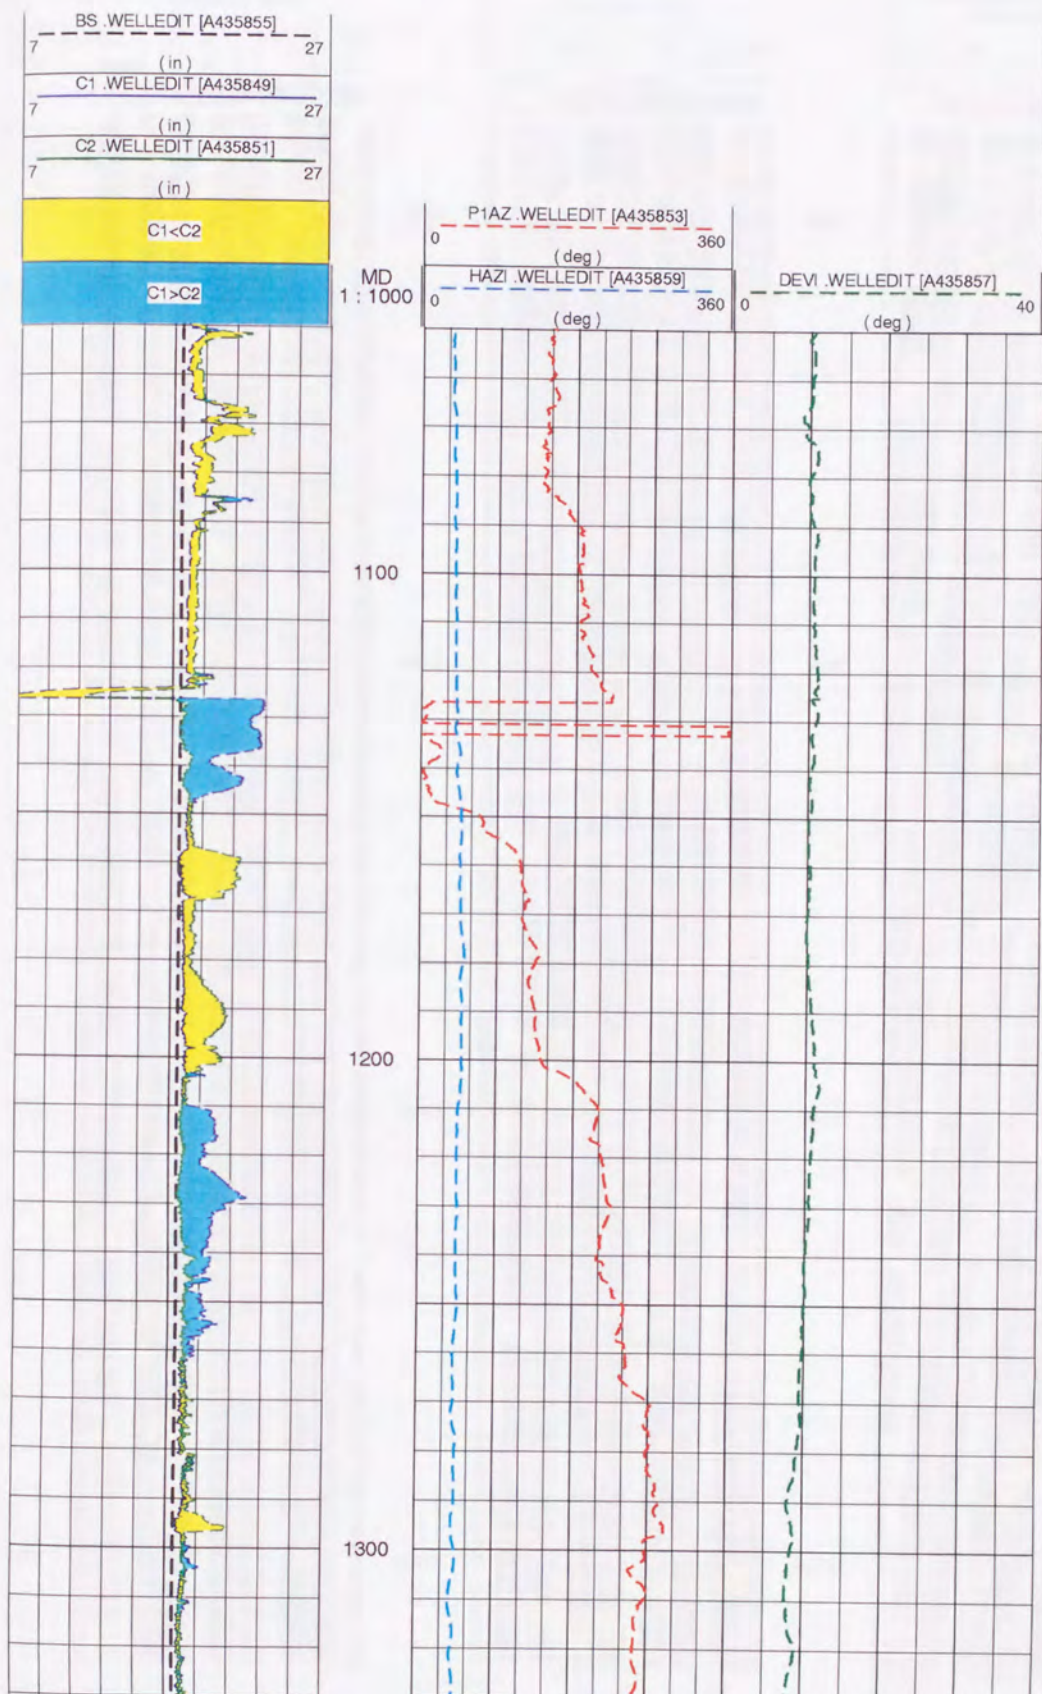 BS .WELLEDIT [A435855]
7 27
(in)
C1 .WELLEDIT [A435849]
7 27
(in)
C2 .WELLEDIT [A435851]
7 27
(in)
C1<C2
C1>C2
MD
1 : 1000
P1AZ .WELLEDIT [A435853]
0 360
(deg)
HAZI .WELLEDIT [A435859]
0 360
(deg)
DEVI .WELLEDIT [A435857]
0 40
(deg)
1100
1200
1300